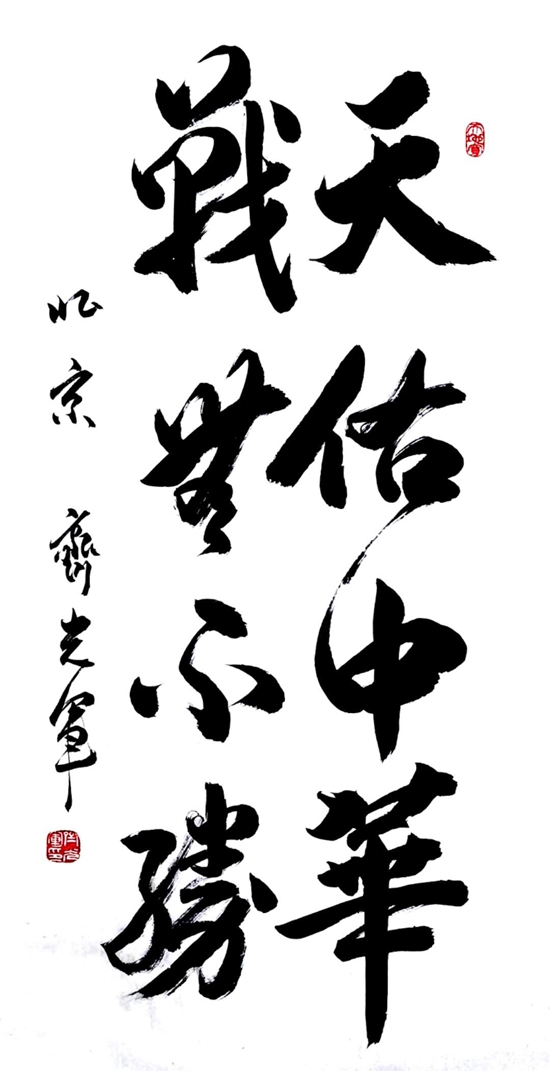 天佑中華
戰無不勝
北京 齊光軍